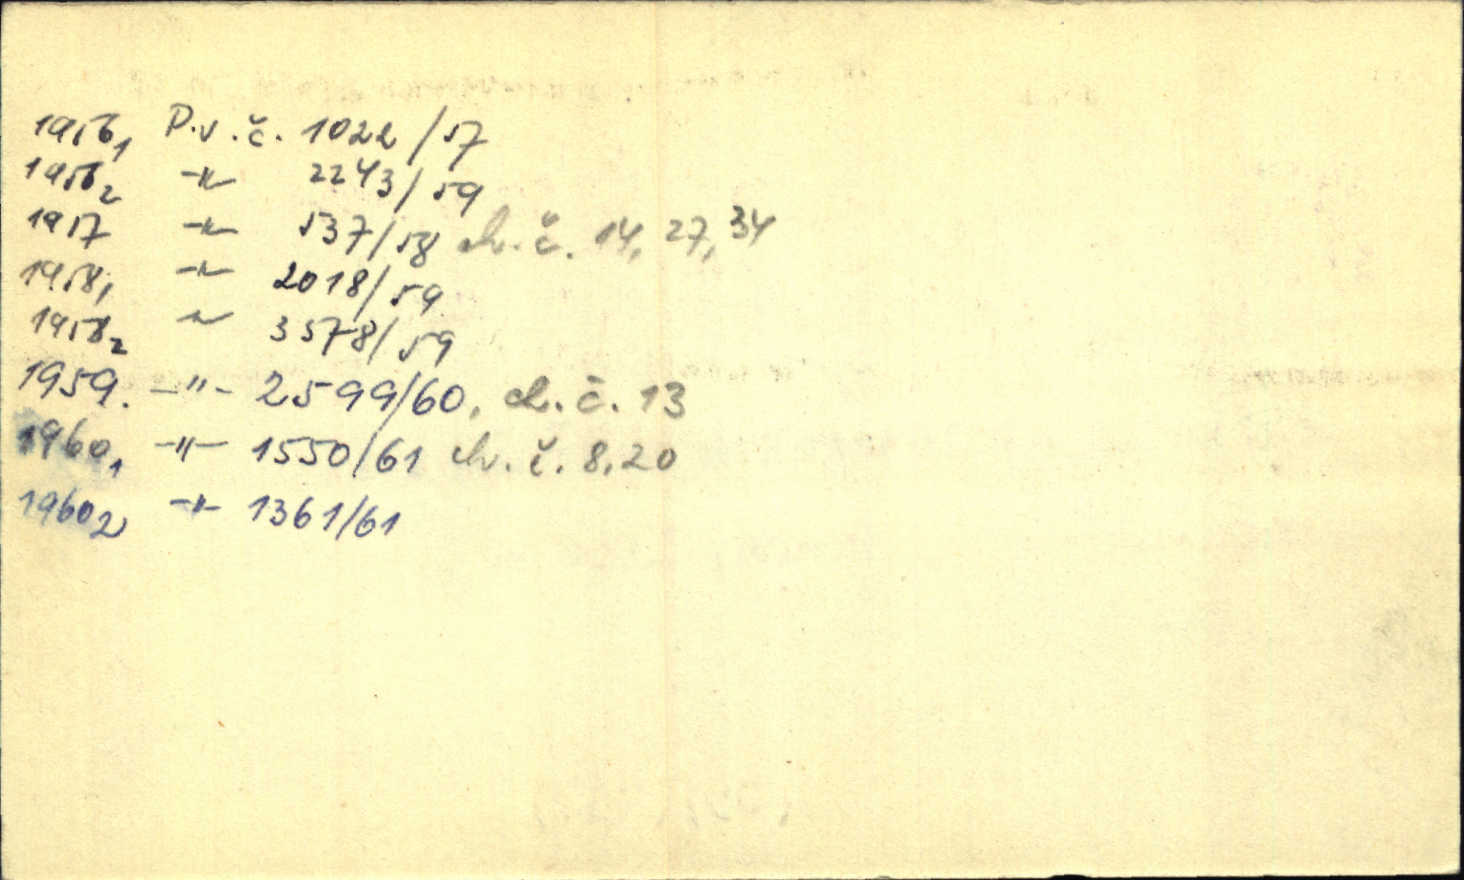 1956,1 P.v.č. 1022/57
1956,2 -"- 2243/59
1957 -"- 537/58 ch.č. 14, 27, 34
1958,1 -"- 2018/59
1958,2 -"- 3578/59
1959. -"- 2599/60, ch.č. 13
1960,1 -"- 1550/61 ch.č. 8,20
1960,2 -"- 1361/61